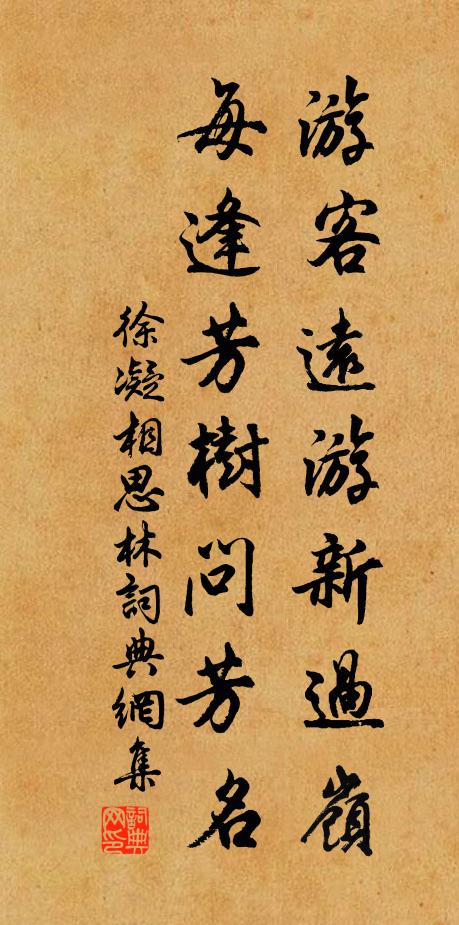 游客遠游新過嶺
每逢芳樹問芳名
徐凝相思林詞典網集
詞典網印